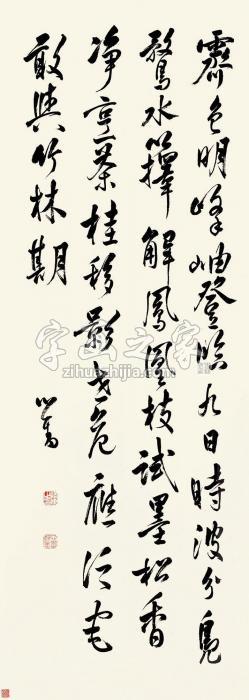 霽色明峰岫登臨九日時波分鳧
鷖水籜解鳳凰枝試墨松香
净烹茶桂移影世危應泛宅
敢與竹林期
心畬
字画之家
zihuazhijia.com